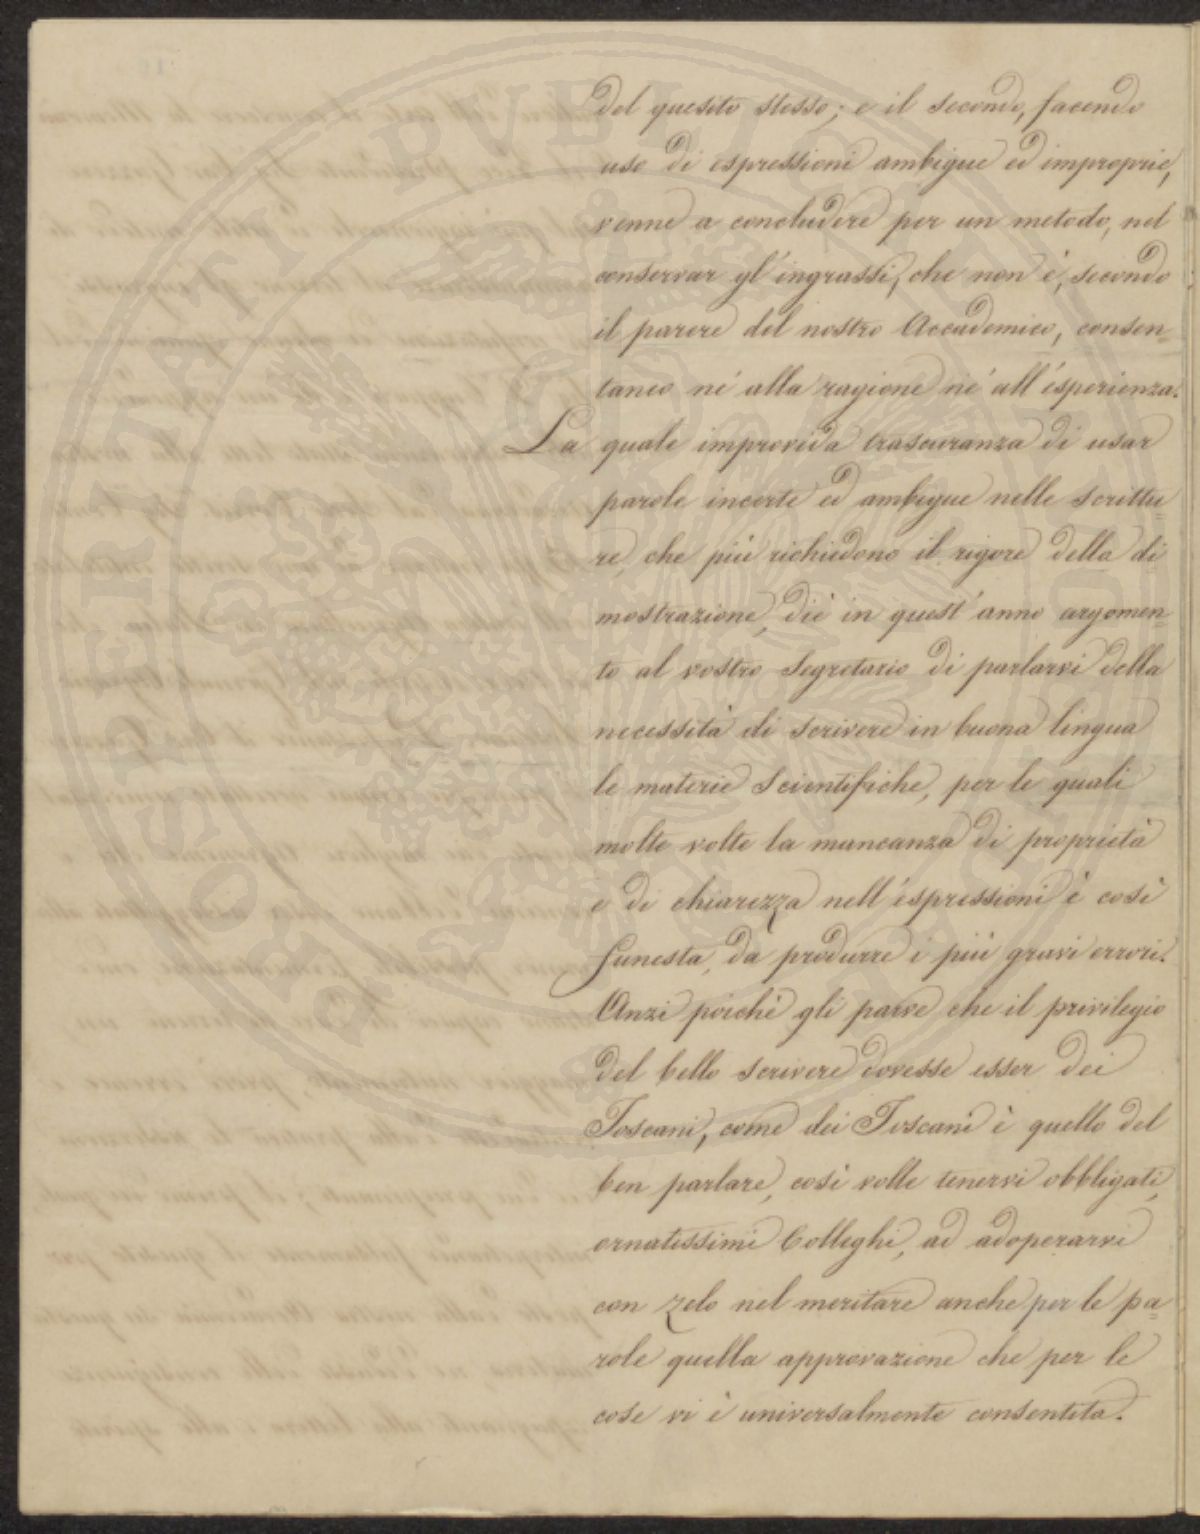 del quesito stesso; e il secondo, facendo
uso di espressioni ambigue ed improprie,
venne a concludere per un metodo, nel
conservar gl'ingrassi, che non è, secondo
il parere del nostro Accademico, consen=
taneo nè alla ragione nè all'esperienza.
La quale improvida trascuranza di usar
parole incerte ed ambigue nelle scrittu=
re, che più richiedono il rigore della di
mostrazione, diè in quest'anno argomen=
to al vostro Segretario di parlarvi della
necessità di scrivere in buona lingua
le materie Scientifiche, per le quali
molte volte la mancanza di proprietà
e di chiarezza nell'espressioni è così
funesta, da produrre i più gravi errori.
Anzi poichè gli parve che il privilegio
del bello scrivere dovesse esser dei
Toscani, come dei Toscani è quello del
ben parlare, così volle tenervi obbligati,
ornatissimi Colleghi, ad adoperarvi
con zelo nel meritare anche per le pa=
role quella approvazione che per le
cose vi è universalmente consentita.
PROSPERITATI PVBLICAE